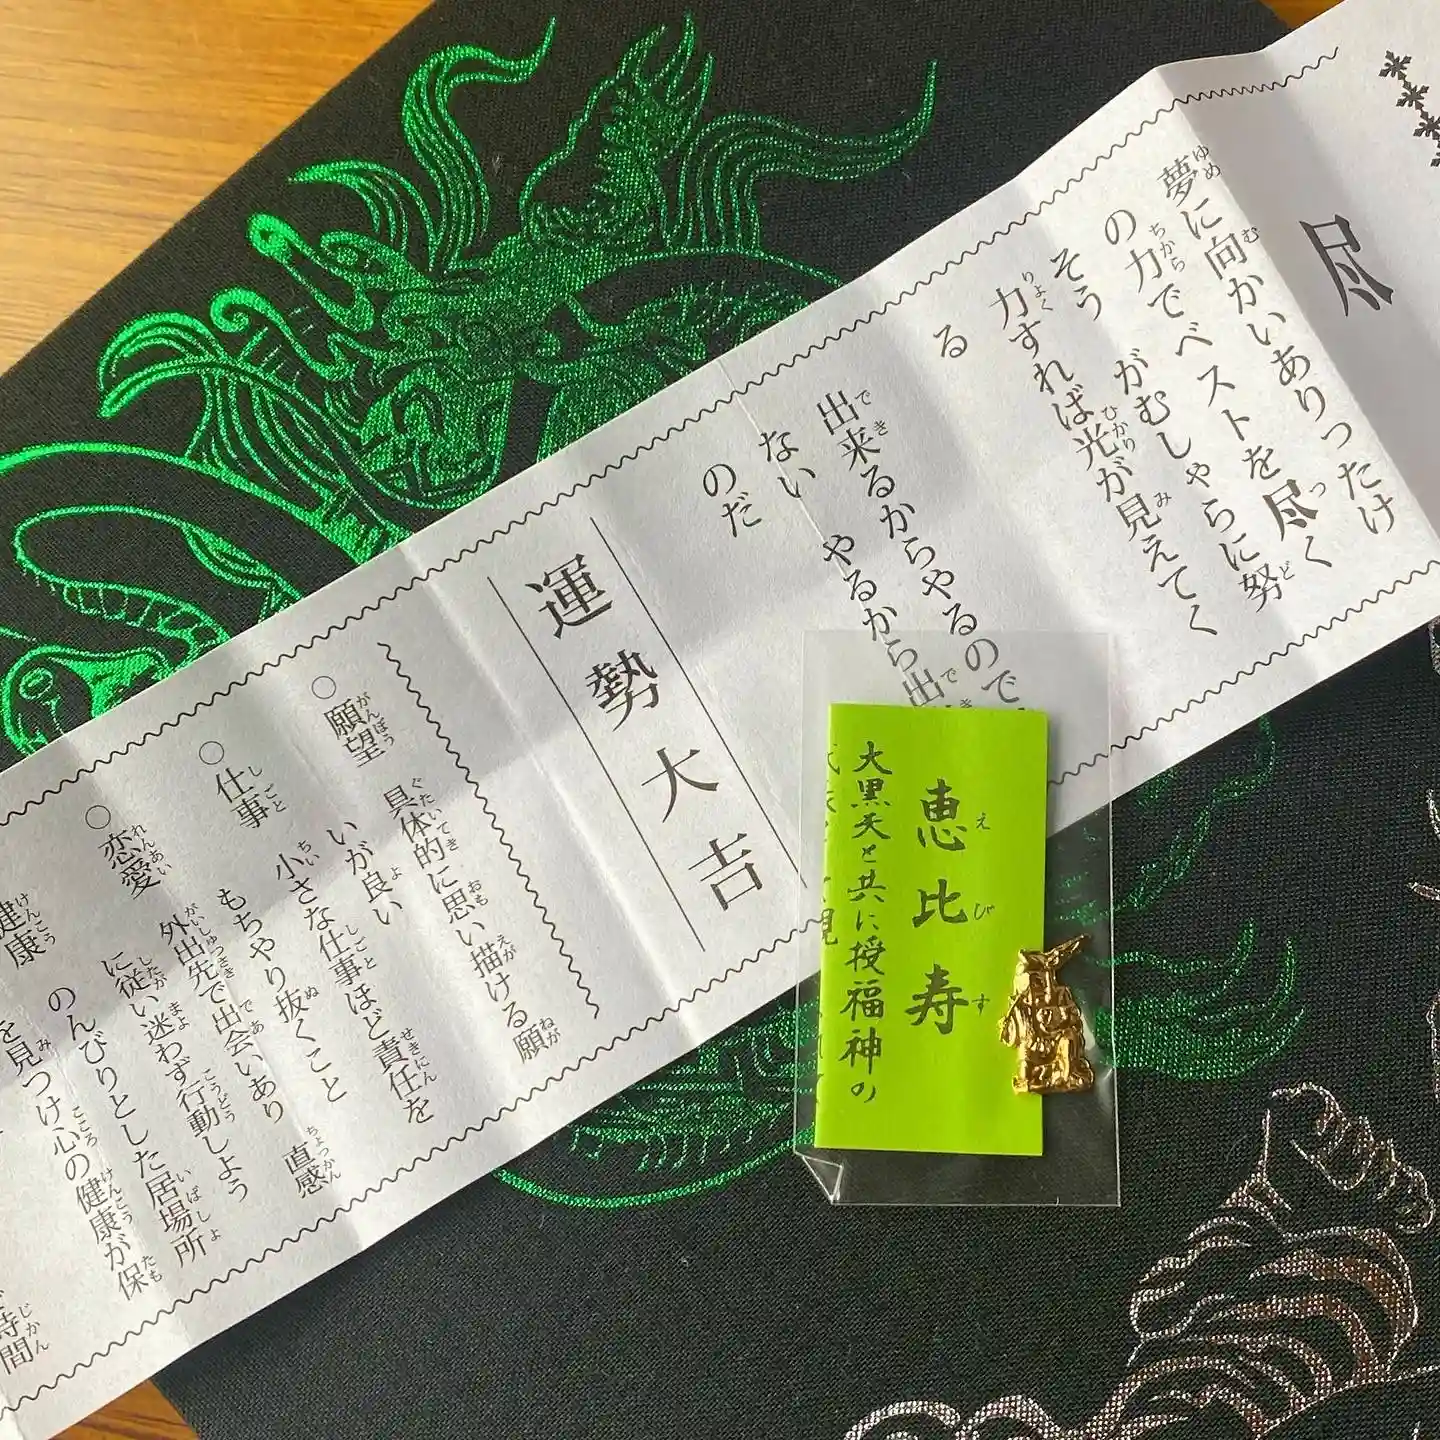 尽
夢に向かいありったけ
の力でベストを尽く
そう がむしゃらに努
力すれば光が見えてく
る
出来るからやるので
ない やるから出
のだ
運勢大吉
○願望 具体的に思い描ける願
いが良い
○仕事 小さな仕事ほど責任を
もちやり抜くこと
○恋愛 外出先で出会いあり 直感
に従い迷わず行動しよう
健康 のんびりとした居場所
を見つけ心の健康が保
時間
恵比寿
えびす
大黒天と共に授福神の